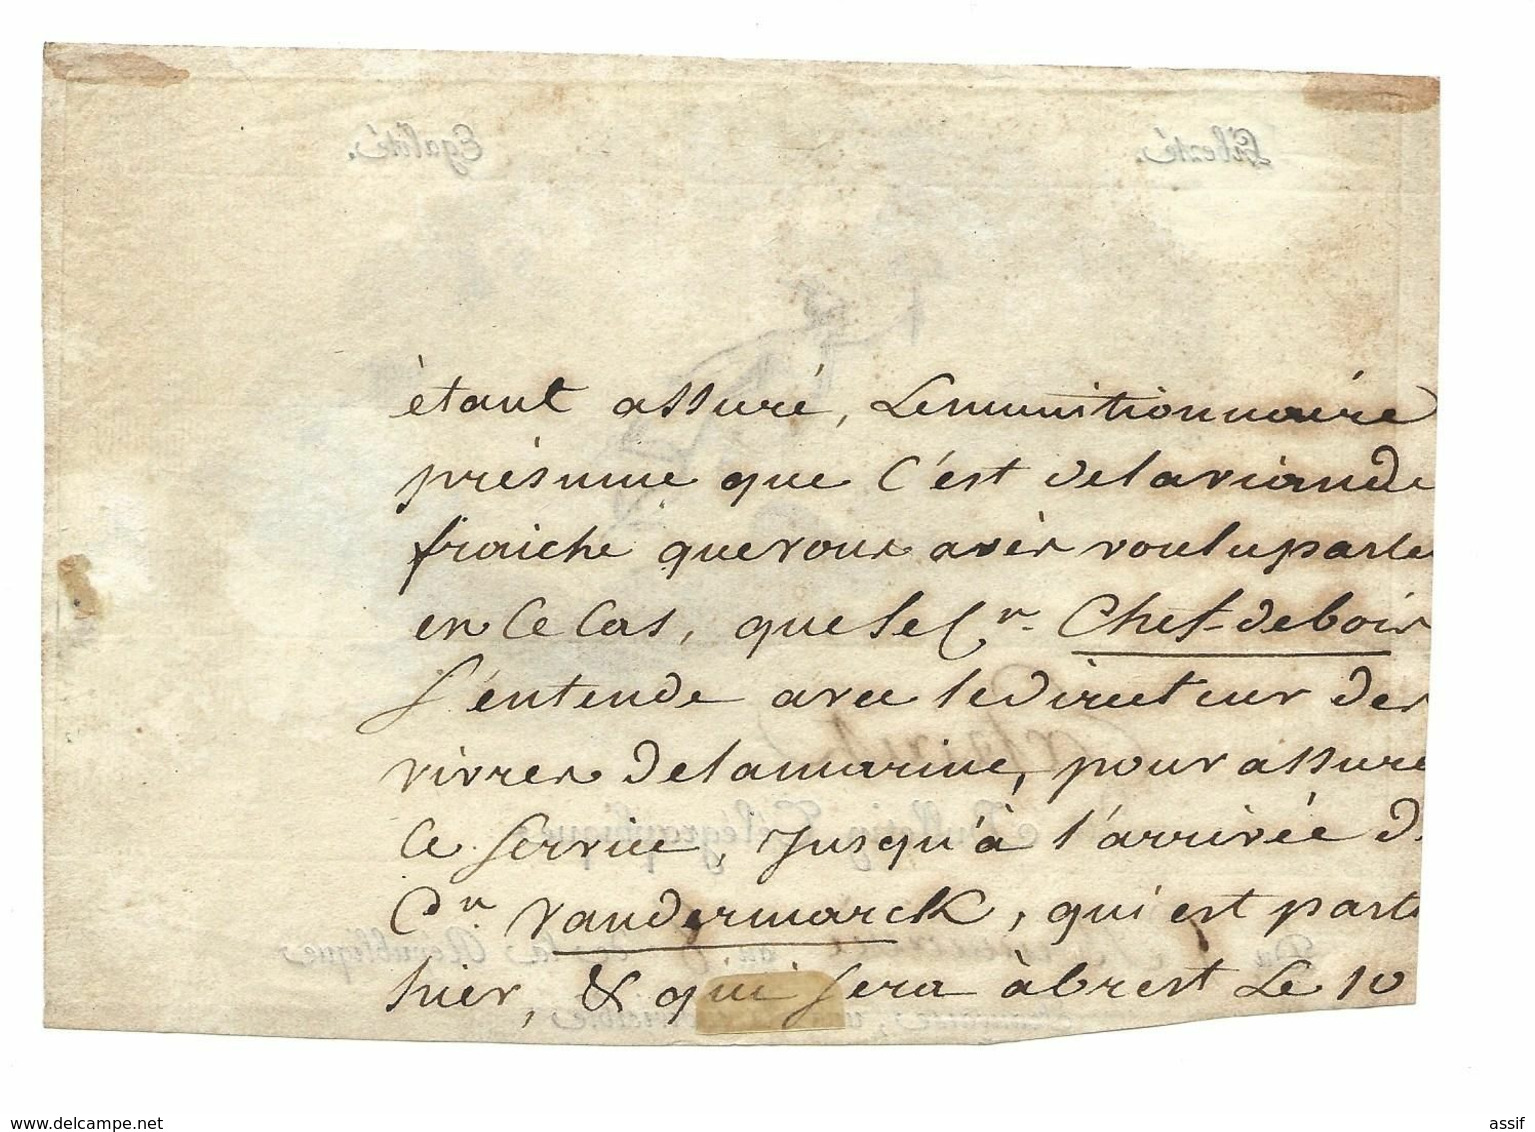 Egalité. Liberté.
étant assuré, Le munitionnaire
présume que C'est de la viande
fraiche que vous avés voulu parle
en Ce Cas, que le C.^n Chef-debois
S'entende avec le Directeur des
vivres de la marine, pour assure
Ce Service, Jusqu'à l'arrivée d
C.^en Vandermarck, qui est parti
hier, & qui Sera à brest Le 10
Bulletin Télégraphique
Du de la République
www.delcampe.net
assif